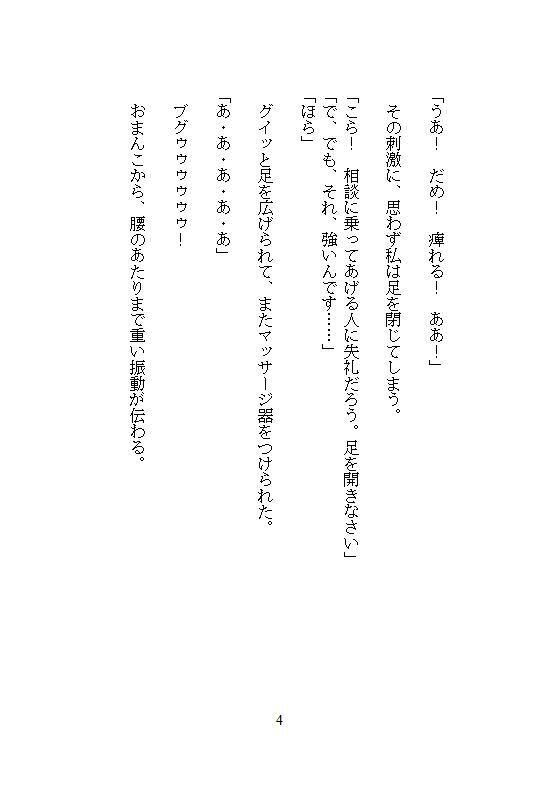 「うあ！　だめ！　痺れる！　ああ！」
その刺激に、思わず私は足を閉じてしまう。
「こら！　相談に乗ってあげる人に失礼だろう。足を開きなさい」
「で、でも、それ、強いんです……」
「ほら」
グイッと足を広げられて、またマッサージ器をつけられた。
「あ・あ・あ・あ・あ」
ブグゥゥゥゥゥゥ！
おまんこから、腰のあたりまで重い振動が伝わる。
4